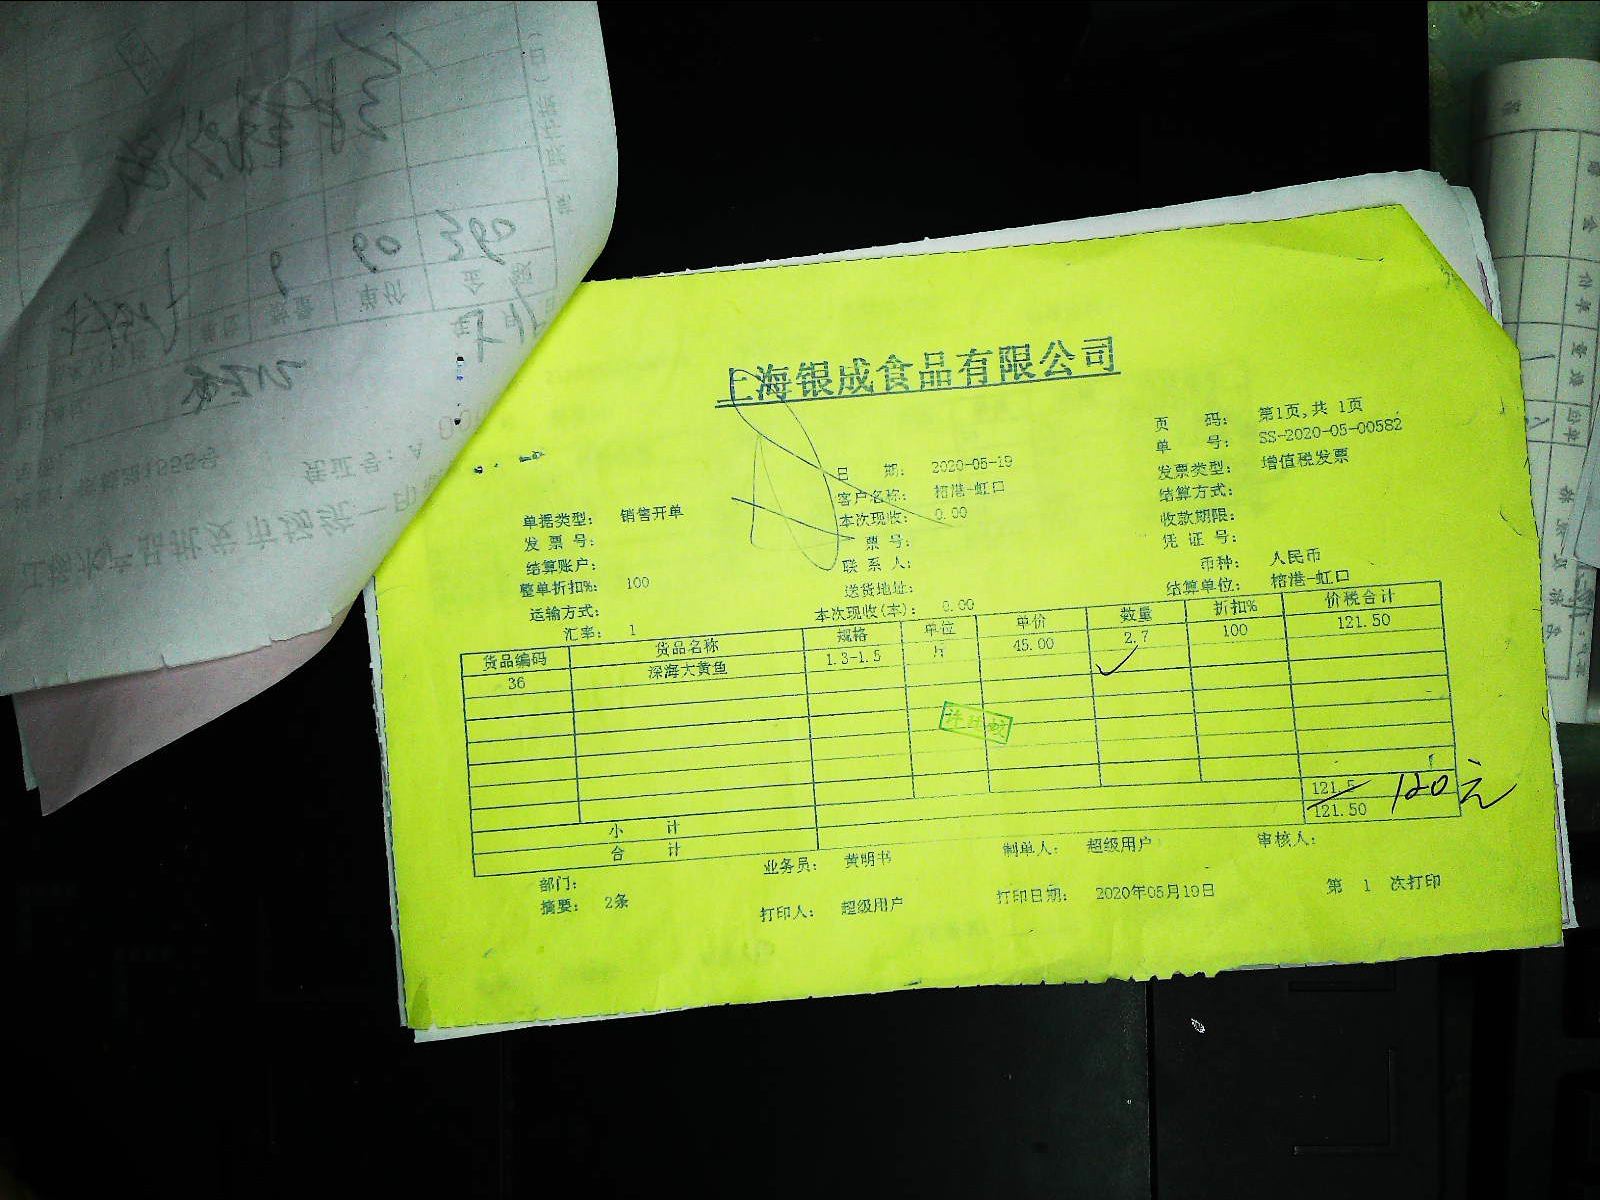 上海银成食品有限公司
页 码： 第1页,共 1页
单 号： SS-2020-05-00582
日 期： 2020-05-19
发票类型： 增值税发票
客户名称： 榕港-虹口
结算方式：
单据类型： 销售开单
本次现收： 0.00
收款期限：
发 票 号：
票 号：
凭 证 号：
结算账户：
联 系 人：
币种： 人民币
整单折扣%： 100
送货地址：
结算单位： 榕港-虹口
运输方式：
本次现收(本)： 0.00
汇率： 1
货品编码 货品名称 规格 单位 单价 数量 折扣% 价税合计
36 深海大黄鱼 1.3-1.5 斤 45.00 2.7 100 121.50
小 计 121.5 120元
合 计 121.50
部门： 业务员： 黄明书 制单人： 超级用户 审核人：
摘要： 2条 打印人： 超级用户 打印日期： 2020年05月19日 第 1 次打印
390
90
单价
数量
凭证号：A
水产品批发市场统一